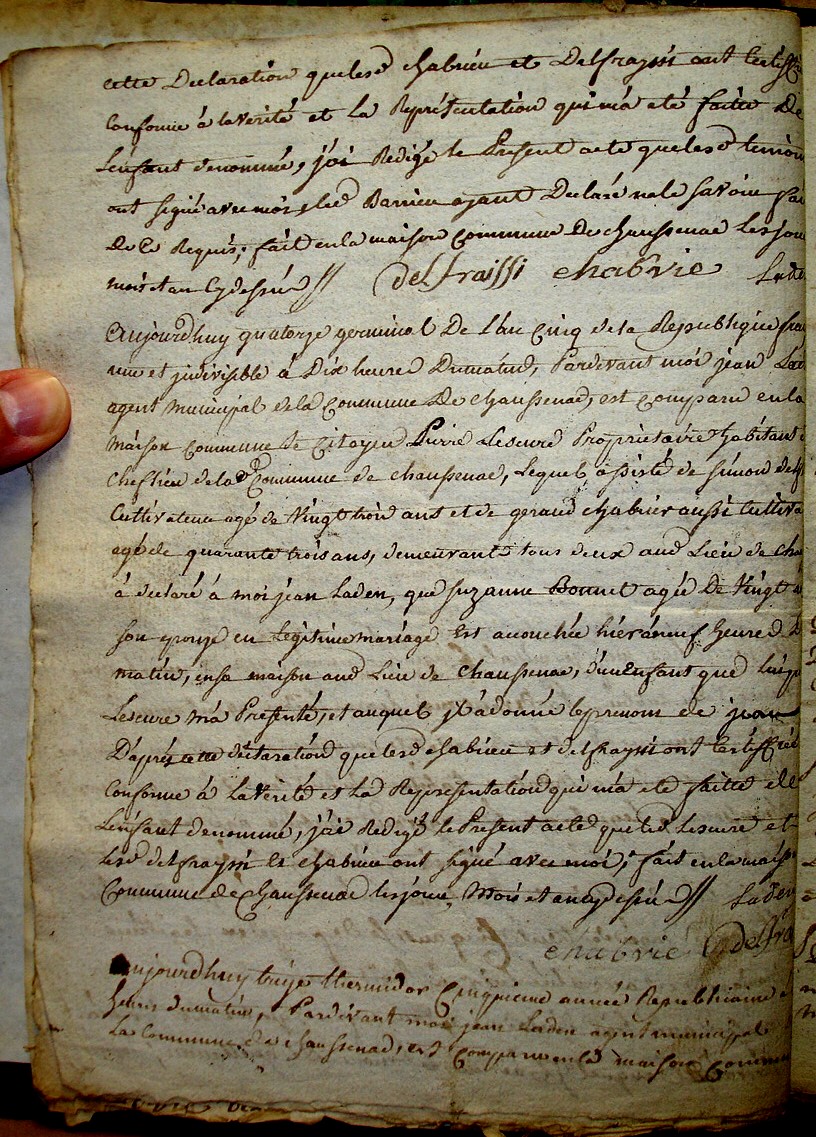 cette Declaration quelesd chabrieu et Delfrayssi ont Certiffi
Conforme á la verité et La Représentation qui m'a eté faitte De
Lenfant denommé, j'ai Redigé le Present acte quelesd temoin
ont signé avec moi, led Barrieu ayant Declaré ne le savoir fai
De Ce Requis; fait en la maison Commune De chaussenac Les jour
mois et an Cy dessus // delfraissi chabrie Lade
Aujourdhuy quatorze germinal De L'an Cinq de la Republique fran
une et jndivisible á Dix heures Dumatin, Pardevant moi jean Lad
agent municipal de la Commune De chaussenac, est Comparu en la
maison Commune le Citoyen Pierre Lescure Propriétaire habitant
Cheflieu de lad Commune de chaussenac, Lequel assisté de simon delf
Cultivateur agé de Vingt trois ans et de geraud chabrier aussi Cultiva
agé de quarante trois ans, demeurants tous deux aud Lieu de cha
á declaré á moi jean Laden, que suzanne Bonnet agée De Vingt
son epouze en Légitime mariage Est accouchée hier á neuf heures D
matin, en sa maison aud Lieu de Chaussenac, d'un Enfant que led p
Lescure m'a Presenté, et auquel jl a donné le prenom de jean
D'après cette déclaration quelesd chabrieu et delfrayssi ont Certiffiée
Conforme á La Vérité et La Representation qui m'a eté faitte de
L'enfant denommé, j'ai Redigé le Present acte que led Lescure et
lesd delfrayssi et chabrieu ont signé avec moi, fait en la maiso
Commune de Chaussenac les jour, Mois et an cy dessus // Laden
chabrie delfra
Aujourdhuy treize thermidor Cinquieme année Republicaine
heures du matin, Pardevant moi jean Laden agent municipal
La Commune de chaussenac, est Comparu en la maison Commun